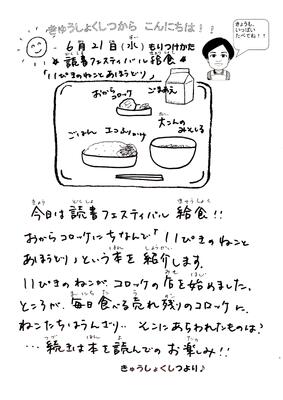 きゅうしょくしつから こんにちは！！
きょうも、
いっぱい
たべてね！！
6月21日(水)もりつけかた
☆読書フェスティバル給食☆
「11ぴきのねことあほうどり」
おからコロッケ
ごまあえ
ごはん
エコふりかけ
大こんの
みそしる
今日は読書フェスティバル給食！！
おからコロッケにちなんで「11ぴきのねこと
あほうどり」という本を紹介します。
11ぴきのねこが、コロッケの店を始めました。
ところが、毎日食べる売れ残りのコロッケに、
ねこたちはうんざり… そこにあらわれたものは？
…続きは本を読んでのお楽しみ！！
きゅうしょくしつより♪